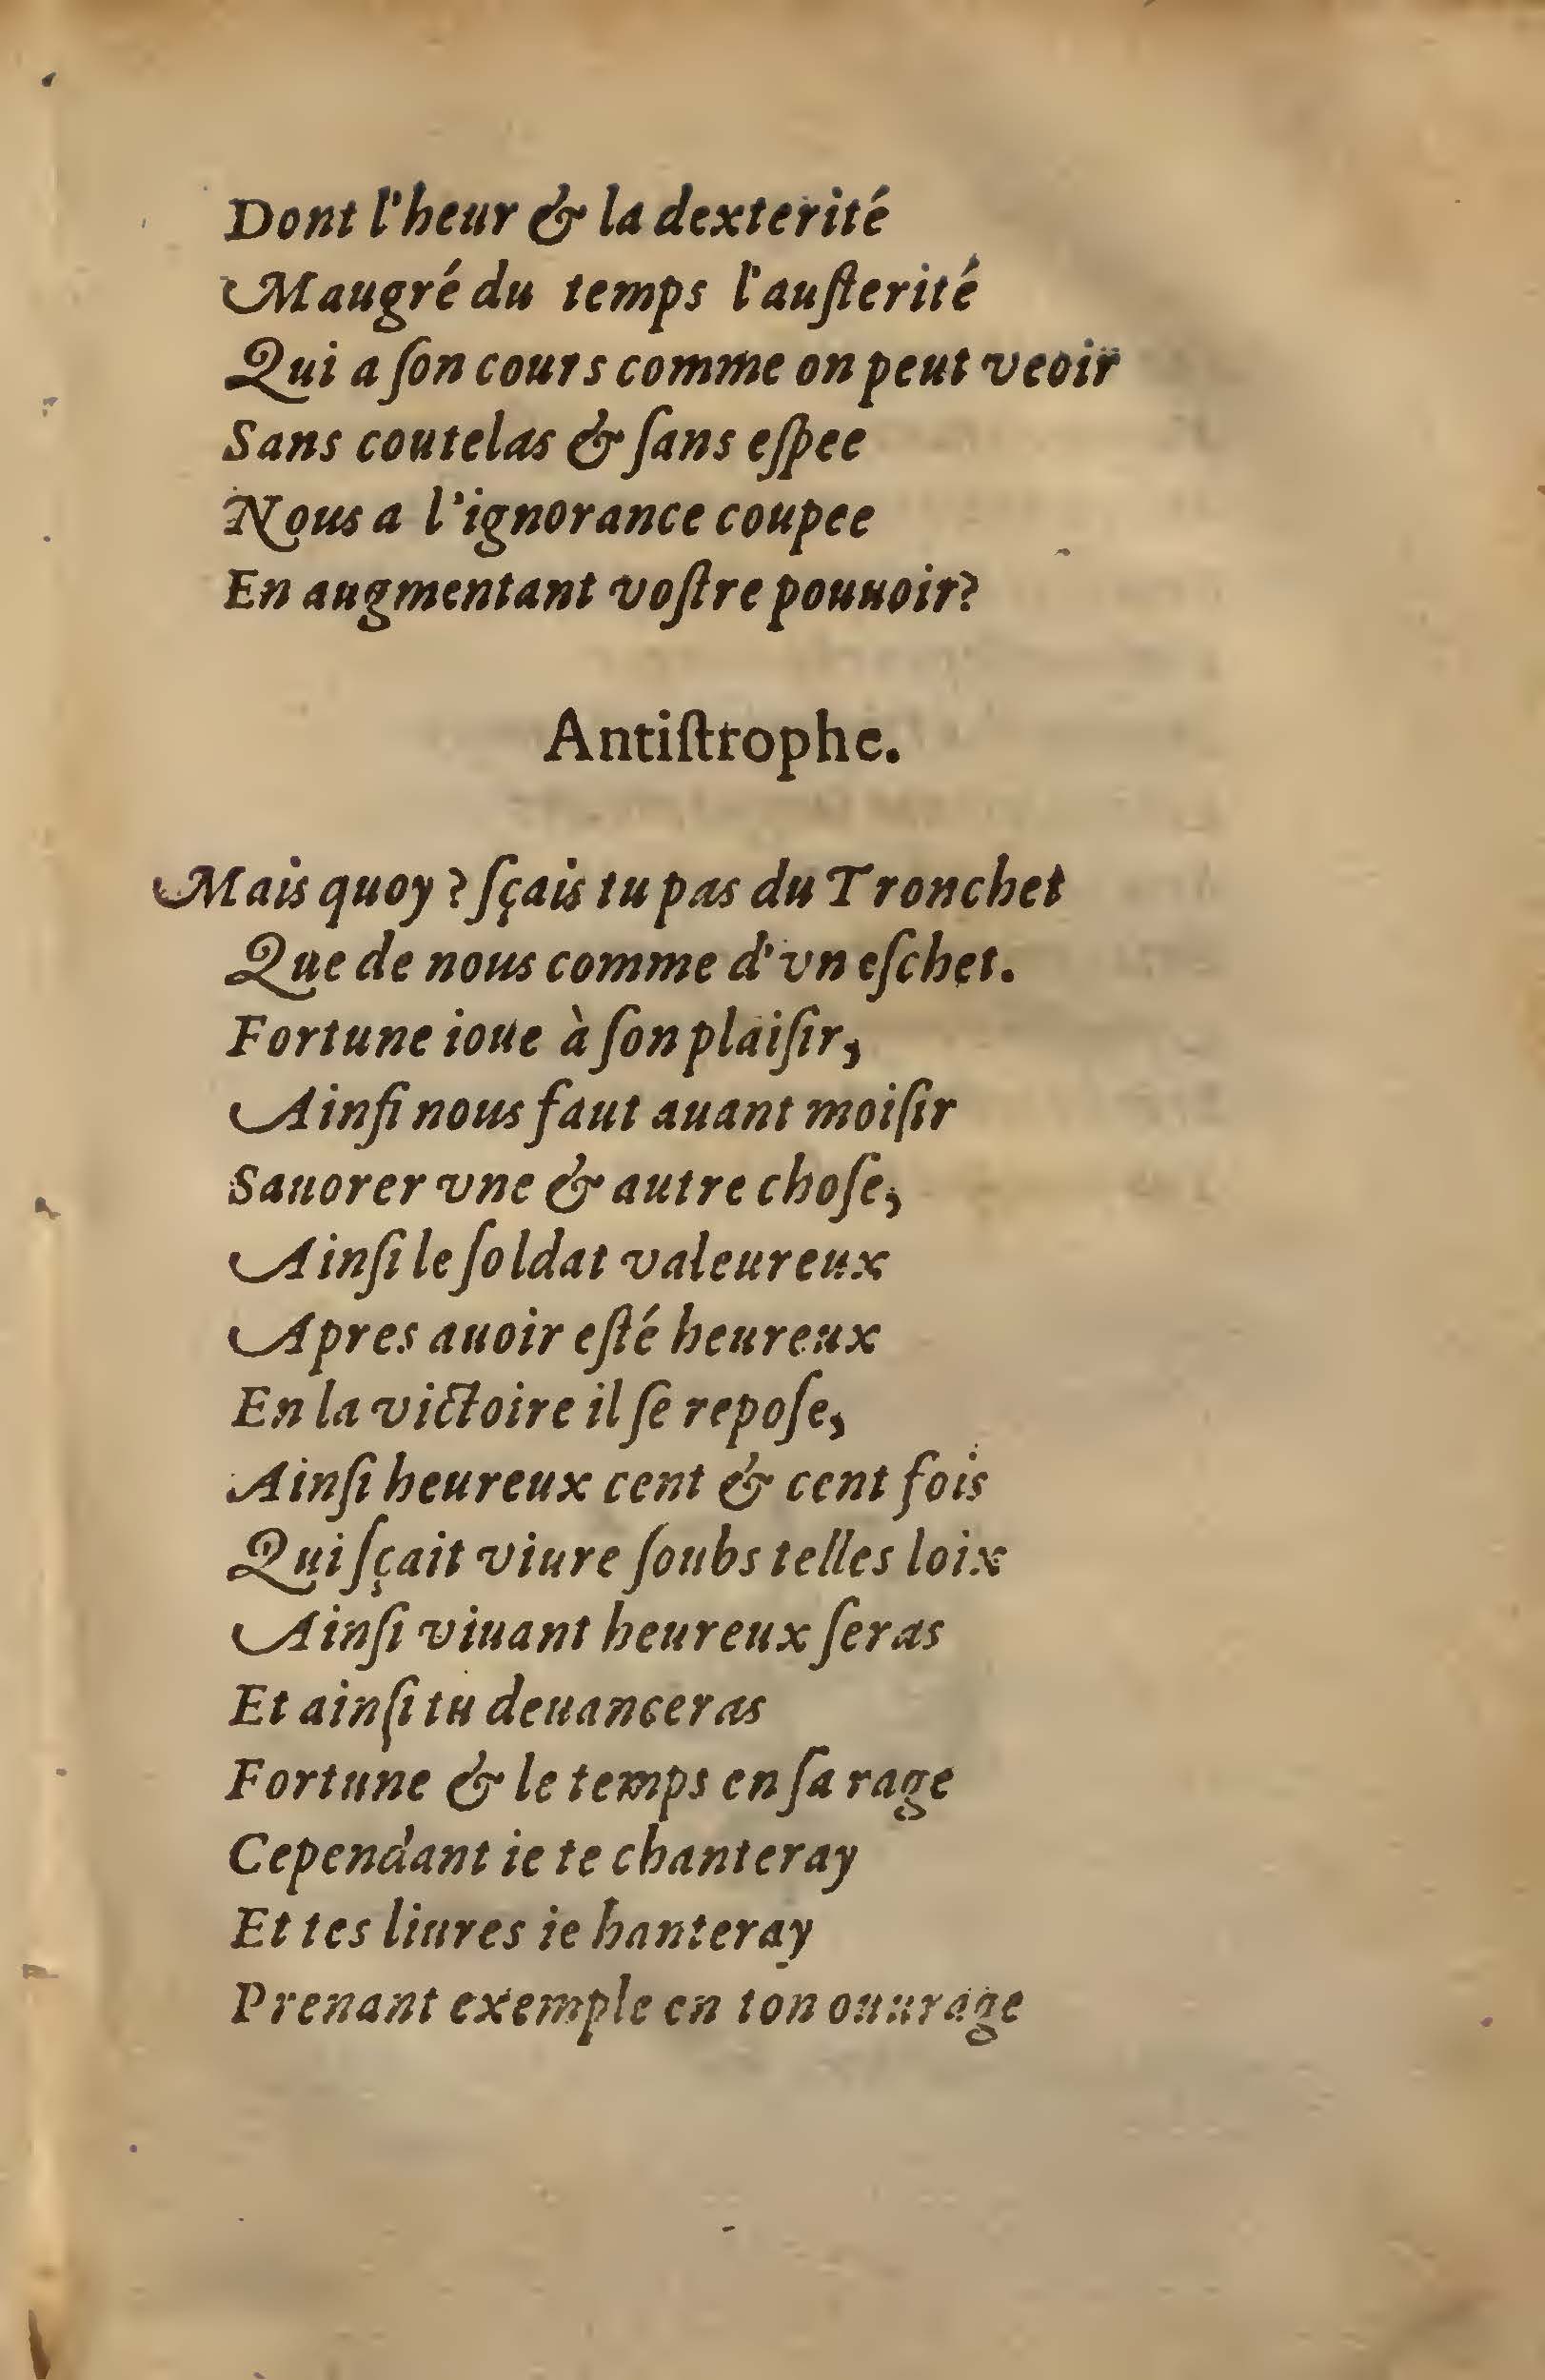 Dont l'heur & la dexterité
Maugré du temps l'auſterité
Qui a ſon cours comme on peut veoir
Sans coutelas & ſans eſpee
Nous a l'ignorance coupee
En augmentant voſtre pouuoir?
Antiſtrophe.
Mais quoy? ſçais tu pas du Tronchet
Que de nous comme d'vn eſchet.
Fortune ioue à ſon plaiſir,
Ainſi nous faut auant moiſir
Sauorer vne & autre choſe,
Ainſi le ſoldat valeureux
Apres auoir eſté heureux
En la victoire il ſe repoſe,
Ainſi heureux cent & cent fois
Qui ſçait viure ſoubs telles loix
Ainſi viuant heureux ſeras
Et ainſi tu deuanceras
Fortune & le temps en ſa rage
Cependant ie te chanteray
Et tes liures ie hanteray
Prenant exemple en ton ouurage